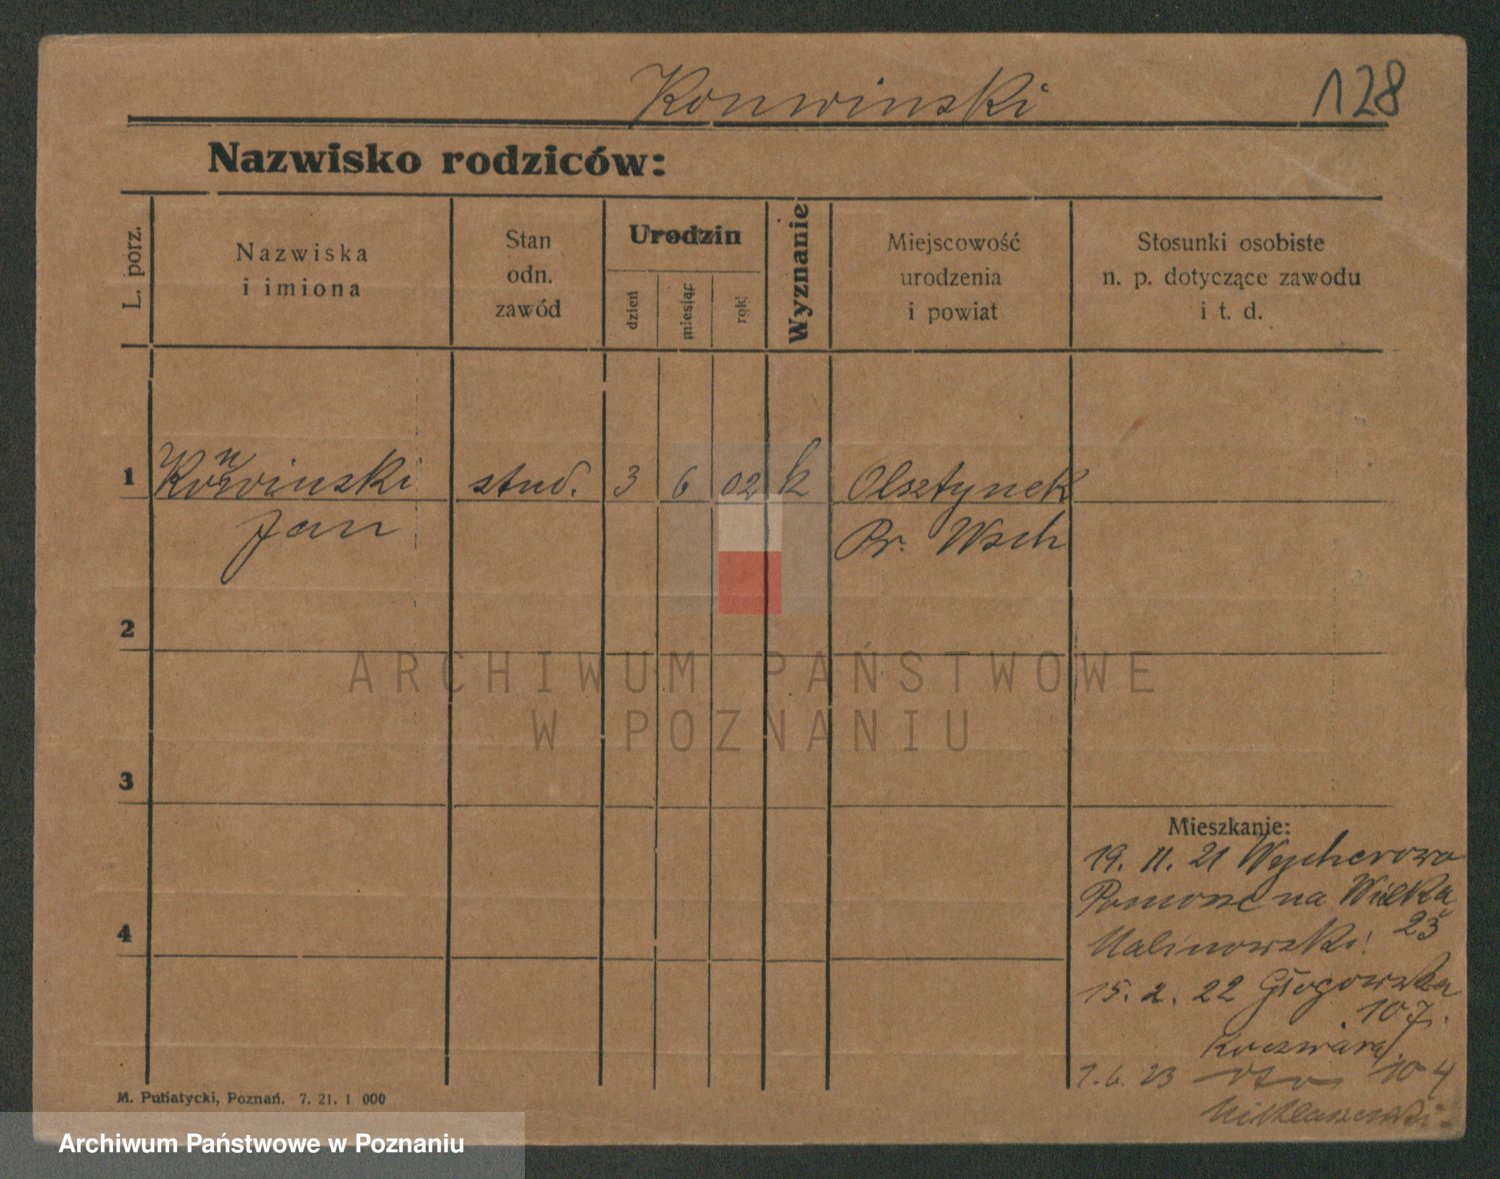 Konwinski
128
Nazwisko rodziców:
L. porz.
Nazwiska
i imiona
Stan
odn.
zawód
Urodzin
dzień
miesiąc
rok
Wyznanie
Miejscowość
urodzenia
i powiat
Stosunki osobiste
n. p. dotyczące zawodu
i t. d.
1 Konwinski stud. 3 6 02 k Olsztynek
Jan Pr. Wsch
2
3
4
Mieszkanie:
19. 11. 21 Wejherowo
Pomorze na Wielka
Malinowski 23
15. 2. 22 Głogowska
107.
1. 6. 23 104
M. Putiatycki, Poznań. 7. 21. 1 000
ARCHIWUM PAŃSTWOWE
W POZNANIU
Archiwum Państwowe w Poznaniu